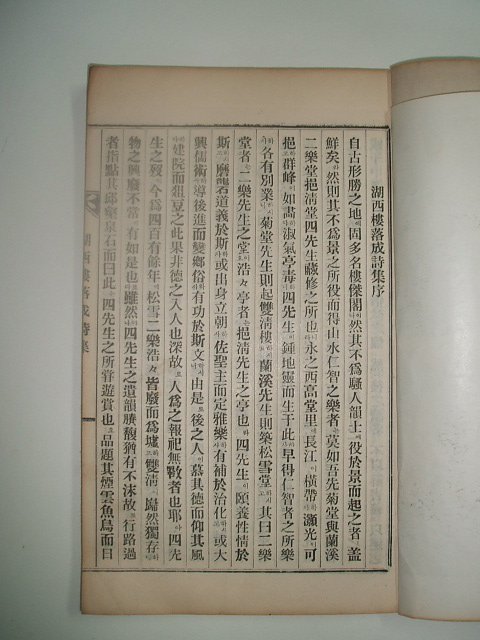 湖西樓落成詩集序
自古形勝之地에固多名樓傑閣이나然其不爲騷人韻士의役於景而起之者ㅣ盖
鮮矣라然則其不爲景之所役而得山水仁智之樂者는莫如吾先菊堂與蘭溪
二樂堂挹淸堂四先生藏修之所也라永之西高堂里에長江이橫帶하야灝光을可
挹이오群峰이如畵하야淑氣亭毒하니四先生이鍾地靈而生于此하사早得仁智者之所樂
하사各有別業하시니菊堂先生則起雙淸樓하시고蘭溪先生則築松雪堂하시고其曰二樂
堂者는二樂先生之堂이오浩々亭者는挹淸先生之亭也라四先生이頤養性情於
斯하시며磨礱道義於斯하사或出身立朝하사佐聖主而定雅樂하사有補於治化하시고或大
興儒術하사導後進而變鄕俗하사有功於斯文하시니由是로後之人이慕其德而仰其風
하야建院而狙豆之하니此果非德之入人也深故로人爲之報祀無斁者也耶아四先
生之歿이今爲四百有餘年에松雪二樂浩々는皆廢而爲墟하고雙淸이巋然獨存하니
物之興廢不常이有如是也라雖然이나四先生之遺韻賸馥猶有不沫故로行路過
者ㅣ指點其邱壑泉石而曰此는四先生之所眷遊賞也라하고品題其煙雲魚鳥而曰
湖西樓落成詩集